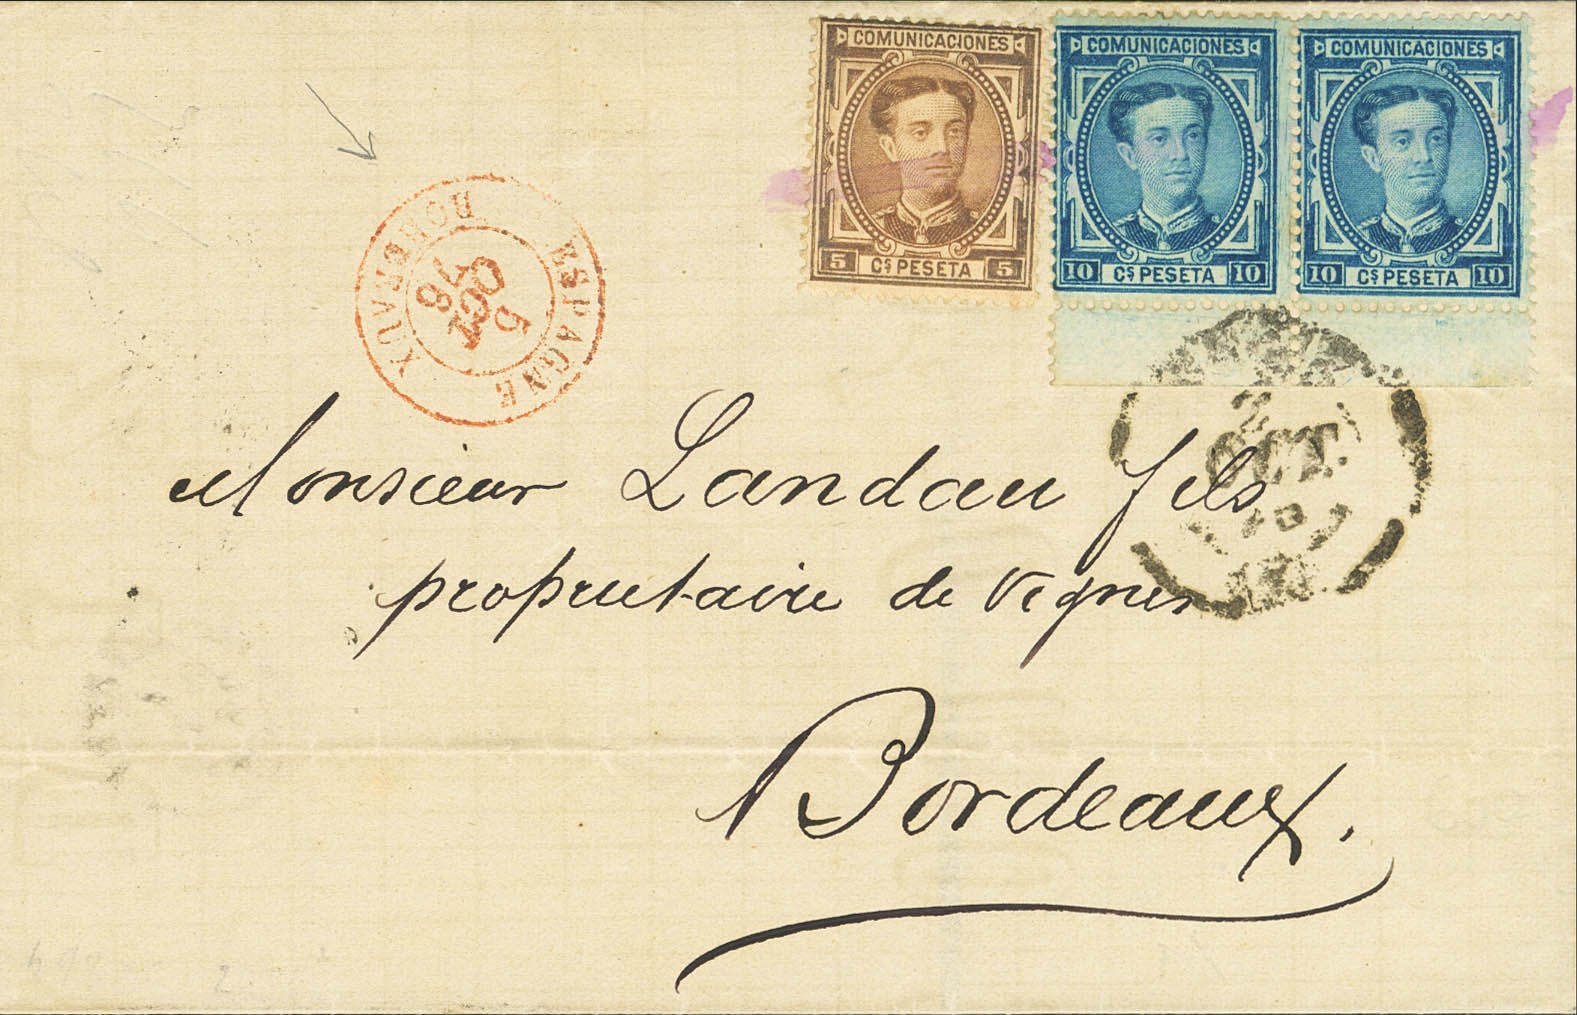 COMUNICACIONES
5 Cs PESETA 5
COMUNICACIONES
10 Cs PESETA 10
COMUNICACIONES
10 Cs PESETA 10
ESPAGNE
5
OCT
76
BORDEAUX
2
OCT.
Monsieur Landau fils
proprietaire de vignes
Bordeaux.